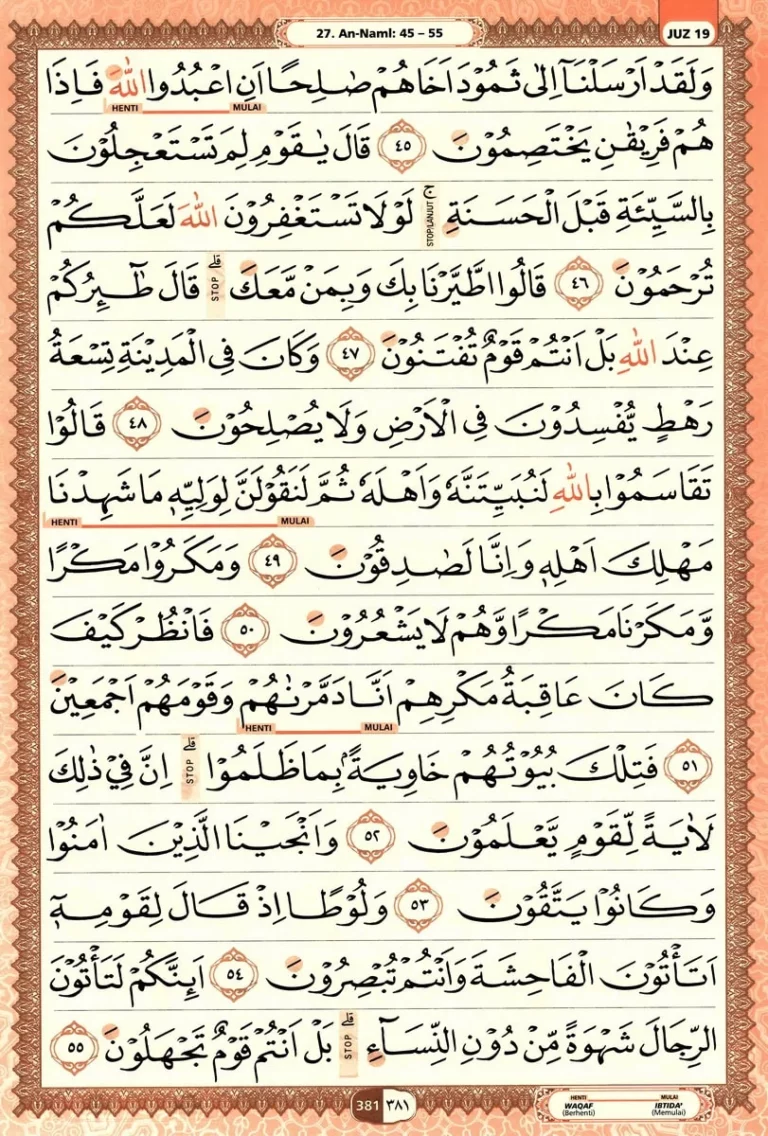 27. An-Naml: 45 – 55
JUZ 19
وَلَقَدْ اَرْسَلْنَآ اِلٰى ثَمُوْدَ اَخَاهُمْ صٰلِحًا اَنِ اعْبُدُوا اللّٰهَ فَاِذَا
HENTI MULAI
هُمْ فَرِيْقٰنِ يَخْتَصِمُوْنَ ٤٥ قَالَ يٰقَوْمِ لِمَ تَسْتَعْجِلُوْنَ
بِالسَّيِّئَةِ قَبْلَ الْحَسَنَةِ ۚ STOP/LANJUT لَوْلَا تَسْتَغْفِرُوْنَ اللّٰهَ لَعَلَّكُمْ
تُرْحَمُوْنَ ٤٦ قَالُوا اطَّيَّرْنَا بِكَ وَبِمَنْ مَّعَكَ ۗ STOP قَالَ طٰۤىِٕرُكُمْ
عِنْدَ اللّٰهِ بَلْ اَنْتُمْ قَوْمٌ تُفْتَنُوْنَ ٤٧ وَكَانَ فِى الْمَدِيْنَةِ تِسْعَةُ
رَهْطٍ يُّفْسِدُوْنَ فِى الْاَرْضِ وَلَا يُصْلِحُوْنَ ٤٨ قَالُوْا
تَقَاسَمُوْا بِاللّٰهِ لَنُبَيِّتَنَّهٗ وَاَهْلَهٗ ثُمَّ لَنَقُوْلَنَّ لِوَلِيِّهٖ مَا شَهِدْنَا
HENTI MULAI
مَهْلِكَ اَهْلِهٖ وَاِنَّا لَصٰدِقُوْنَ ٤٩ وَمَكَرُوْا مَكْرًا
وَّمَكَرْنَا مَكْرًا وَّهُمْ لَا يَشْعُرُوْنَ ٥٠ فَانْظُرْ كَيْفَ
كَانَ عَاقِبَةُ مَكْرِهِمْ اَنَّا دَمَّرْنٰهُمْ وَقَوْمَهُمْ اَجْمَعِيْنَ
HENTI MULAI
٥١ فَتِلْكَ بُيُوْتُهُمْ خَاوِيَةً ۢبِمَا ظَلَمُوْا ۗ STOP اِنَّ فِيْ ذٰلِكَ
لَاٰيَةً لِّقَوْمٍ يَّعْلَمُوْنَ ٥٢ وَاَنْجَيْنَا الَّذِيْنَ اٰمَنُوْا
وَكَانُوْا يَتَّقُوْنَ ٥٣ وَلُوْطًا اِذْ قَالَ لِقَوْمِهٖٓ
اَتَأْتُوْنَ الْفَاحِشَةَ وَاَنْتُمْ تُبْصِرُوْنَ ٥٤ اَىِٕنَّكُمْ لَتَأْتُوْنَ
الرِّجَالَ شَهْوَةً مِّنْ دُوْنِ النِّسَاۤءِ ۗ STOP بَلْ اَنْتُمْ قَوْمٌ تَجْهَلُوْنَ ٥٥
381 ٣٨١
HENTI MULAI
WAQAF IBTIDA'
(Berhenti) (Memulai)